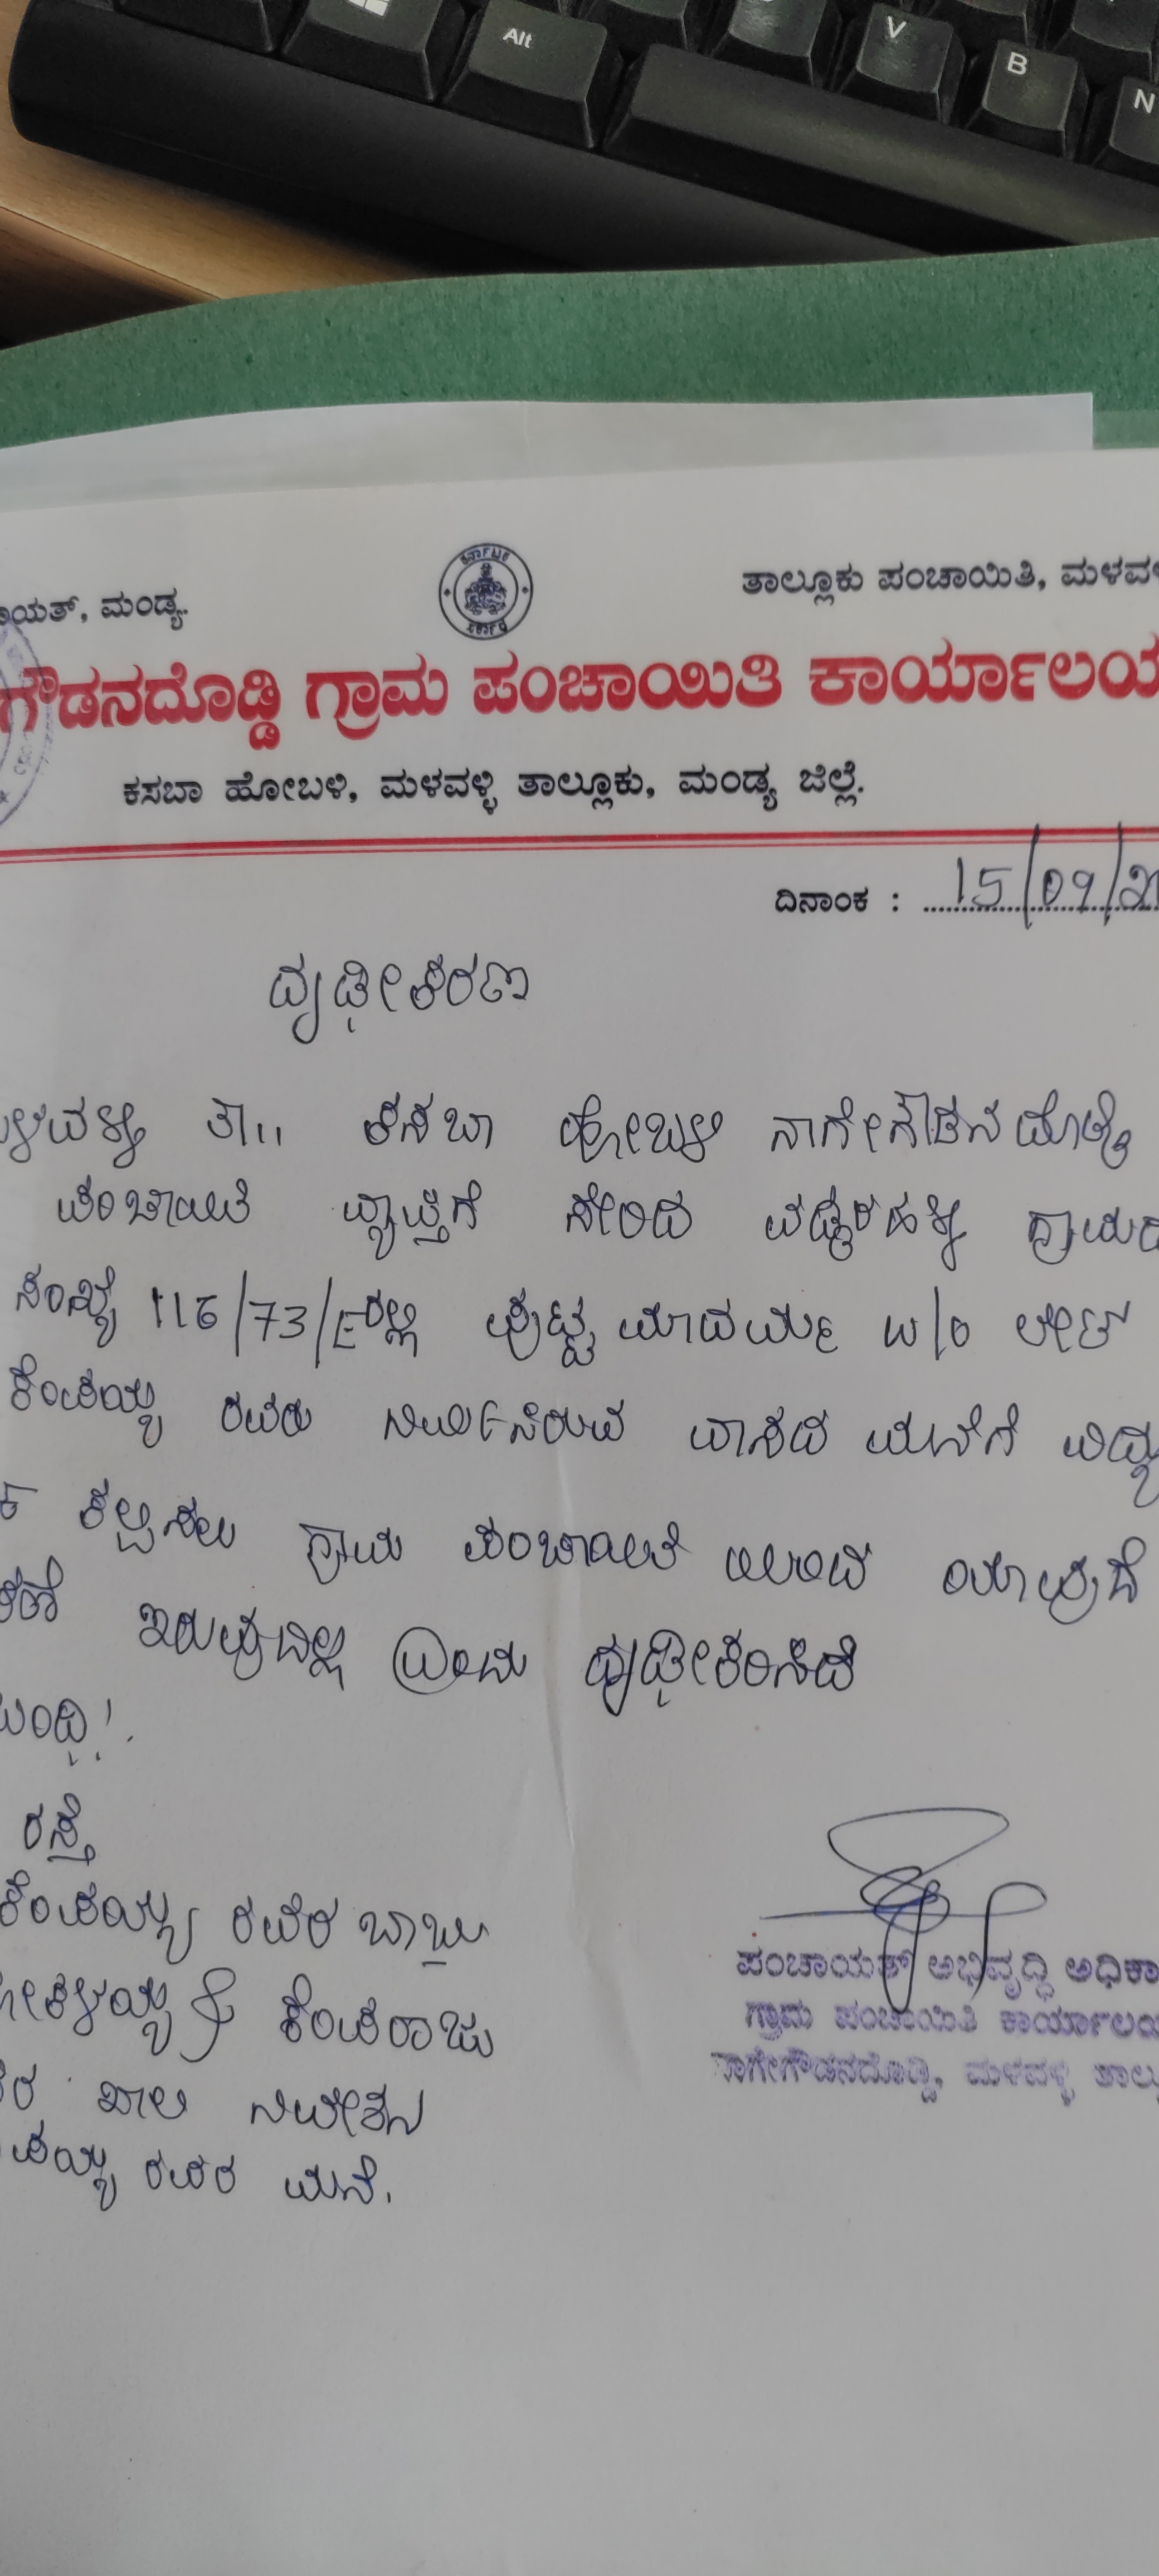 Alt
V
B
N
ಾಯತ್, ಮಂಡ್ಯ.
ಕರ್ನಾಟಕ
ಸರ್ಕಾರ
ತಾಲ್ಲೂಕು ಪಂಚಾಯಿತಿ, ಮಳವಳ
ಗೌಡನದೊಡ್ಡಿ ಗ್ರಾಮ ಪಂಚಾಯಿತಿ ಕಾರ್ಯಾಲಯ
ಕಸಬಾ ಹೋಬಳಿ, ಮಳವಳ್ಳಿ ತಾಲ್ಲೂಕು, ಮಂಡ್ಯ ಜಿಲ್ಲೆ.
ದಿನಾಂಕ : 15/09/20
ದೃಢೀಕರಣ
ಮಳವಳ್ಳಿ ತಾ|| ಕಸಬಾ ಹೋಬಳಿ ನಾಗೇಗೌಡನದೊಡ್ಡಿ
ಪಂಚಾಯಿತಿ ವ್ಯಾಪ್ತಿಗೆ ಸೇರಿದ ವಡ್ಡರಹಳ್ಳಿ ಗ್ರಾಮದ
ಸಂಖ್ಯೆ 116/73/Eರಲ್ಲಿ ಪುಟ್ಟಮಾದಮ್ಮ w/o ಲೇಟ್
ಕೆಂಪಯ್ಯ ರವರು ನಿರ್ಮಿಸಿರುವ ವಾಸದ ಮನೆಗೆ ವಿದ್ಯು
ಕಲ್ಪಿಸಲು ಗ್ರಾಮ ಪಂಚಾಯಿತಿ ಯಿಂದ ಯಾವುದೆ
ಇರುವುದಿಲ್ಲ ಎಂದು ದೃಢೀಕರಿಸಿದೆ
ಬಂದಿ!.
ರಸ್ತೆ
ಕೆಂಪಯ್ಯ ರವರ ಬಾಬು
ಕೆಂಪರಾಜು
ಖಾಲಿ ನಿವೇಶನ
ಪಯ್ಯ ರವರ ಮನೆ.
ಪಂಚಾಯತ್ ಅಭಿವೃದ್ಧಿ ಅಧಿಕಾ
ಗ್ರಾಮ ಪಂಚಾಯಿತಿ ಕಾರ್ಯಾಲಯ
ನಾಗೇಗೌಡನದೊಡ್ಡಿ, ಮಳವಳ್ಳಿ ತಾಲ್ಲೂ